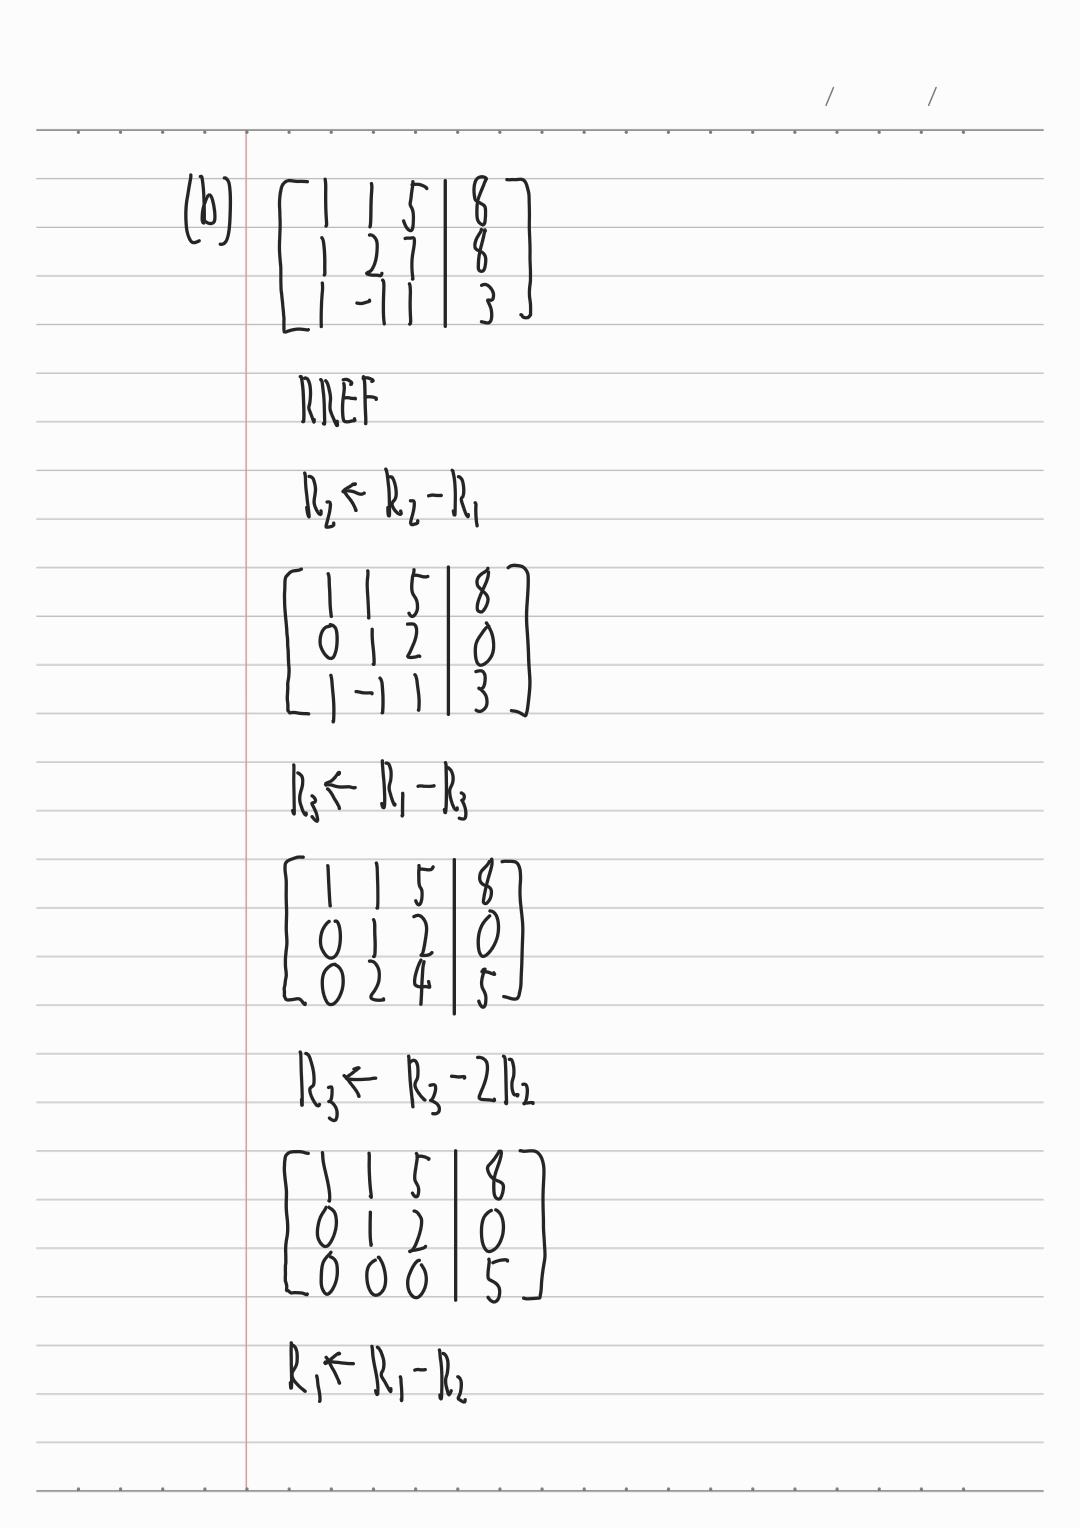 (b)
1 1 5 | 8
1 2 7 | 8
1 -1 1 | 3
RREF
R₂ ← R₂ - R₁
1 1 5 | 8
0 1 2 | 0
1 -1 1 | 3
R₃ ← R₁ - R₃
1 1 5 | 8
0 1 2 | 0
0 2 4 | 5
R₃ ← R₃ - 2R₂
1 1 5 | 8
0 1 2 | 0
0 0 0 | 5
R₁ ← R₁ - R₂